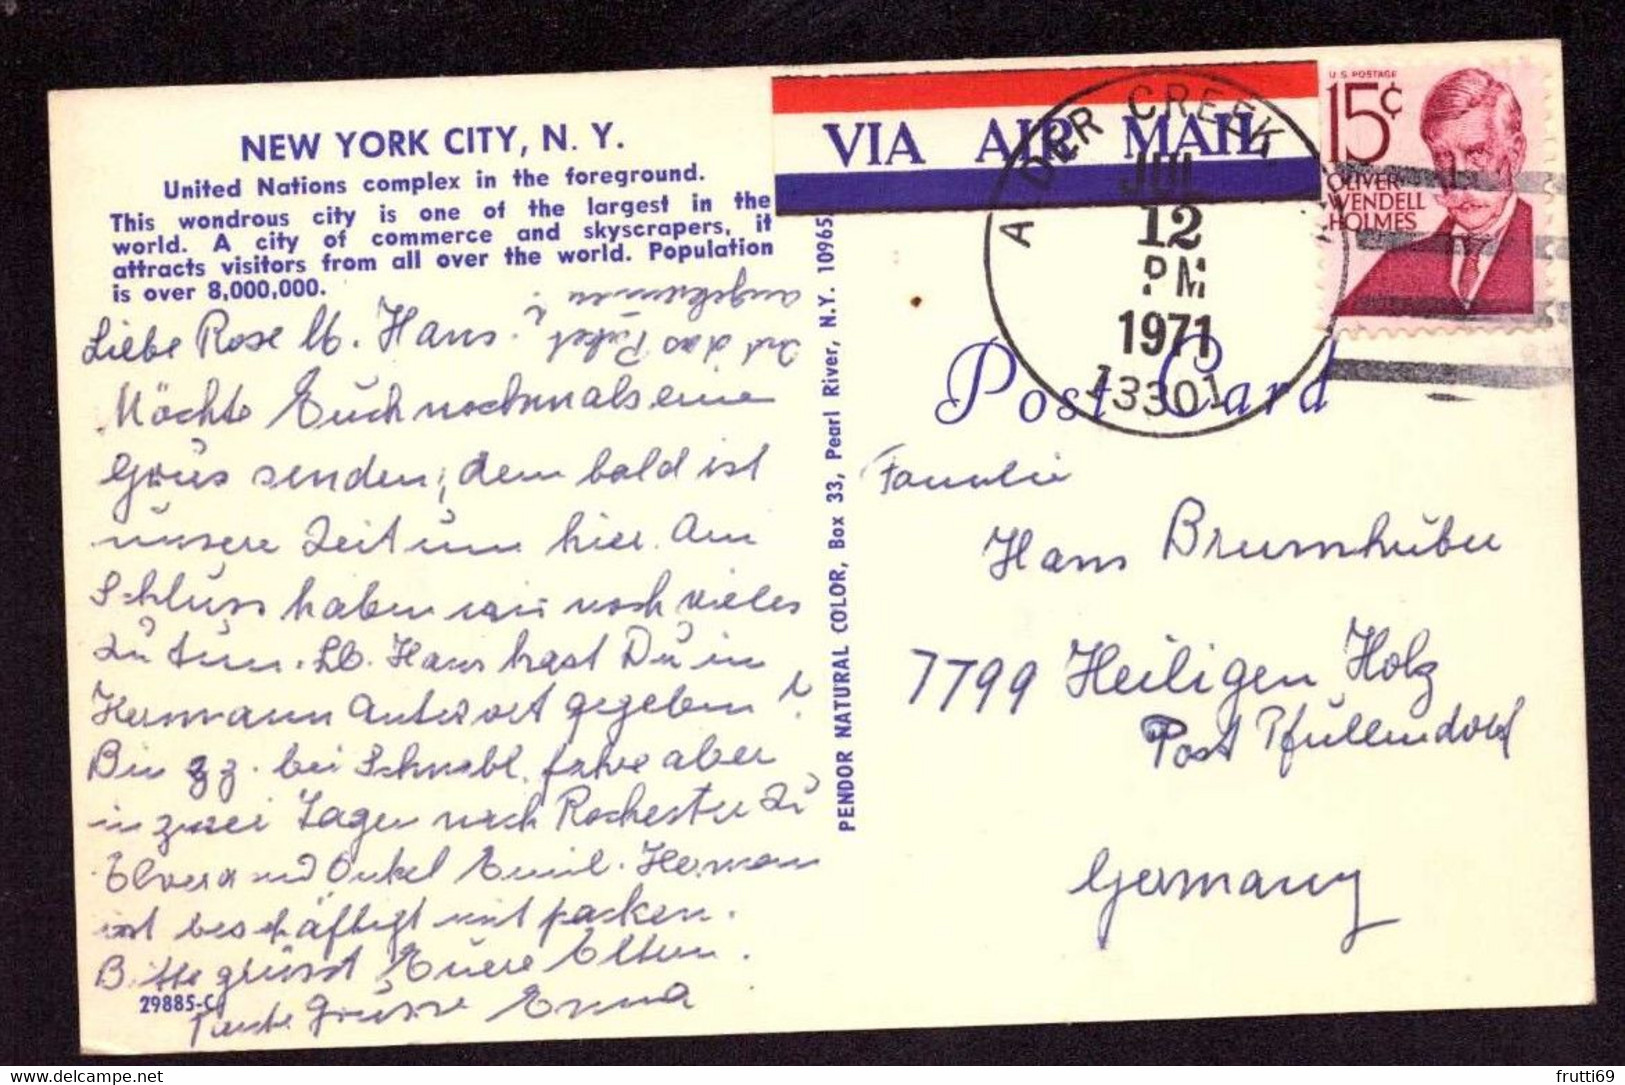 NEW YORK CITY, N. Y.
United Nations complex in the foreground.
This wondrous city is one of the largest in the
world. A city of commerce and skyscrapers, it
attracts visitors from all over the world. Population
is over 8,000,000.
Liebe Rose lb. Hans.
Möchte Euch nochmals eine
Grüs senden, den bald ist
unsere Zeit um hier. Am
Schluss haben wir noch vieles
zu tun. Lb. Hans hast Du in
Hermann Antwort gegeben?
Bin zz. bei Schnabl, fahre aber
in zwei Tagen nach Rochester zu
Elvera und Onkel Emil. Herman
ist beschäftigt mit packen.
Bitte grüsst Euere Eltern.
Grüsse Erna
Ist das Paket
angekommen?
29885-C
PENDOR NATURAL COLOR, Box 33, Pearl River, N.Y. 10965
VIA AIR MAIL
ALDER CREEK
JUL
12
PM
1971
13301
U S POSTAGE
15¢
OLIVER
WENDELL
HOLMES
Post Card
Familie
Hans Brumhuber
7799 Heiligen Holz
Post Pfullendorf
Germany
delcampe.net
frutti69